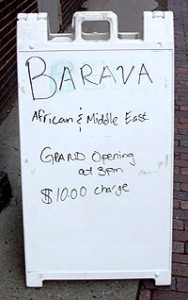 BARAVA
African & Middle East
GRAND Opening
at 3pm
$10.00 charge